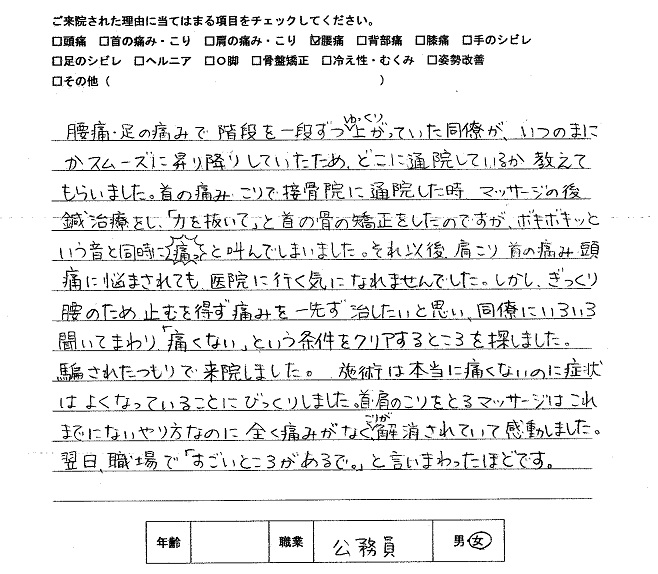 ご来院された理由に当てはまる項目をチェックしてください。
□頭痛 □首の痛み・こり □肩の痛み・こり ☑腰痛 □背部痛 □膝痛 □手のシビレ
□足のシビレ □ヘルニア □O脚 □骨盤矯正 □冷え性・むくみ □姿勢改善
□その他（ ）
腰痛・足の痛みで階段を一段ずつゆっくり上がっていた同僚が、いつのまに
かスムーズに昇り降りしていたため、どこに通院しているか教えて
もらいました。首の痛み・こりで接骨院に通院した時 マッサージの後
鍼治療をし、「力を抜いて」と首の骨の矯正をしたのですが、ボキボキッと
いう音と同時に痛っと叫んでしまいました。それ以後、肩こり 首の痛み 頭
痛に悩まされても、医院に行く気になれませんでした。しかし、ぎっくり
腰のため 止むを得ず 痛みを一先ず 治したいと思い、同僚にいろいろ
聞いてまわり「痛くない」という条件をクリアするところを探しました。
騙されたつもりで来院しました。 施術は本当に痛くないのに症状
はよくなっていることにびっくりしました。首・肩のこりをとるマッサージはこれ
までにないやり方なのに 全く痛みがなくこりが解消されていて感動しました。
翌日、職場で「すごいところがあるで。」と言いまわったほどです。
年齢 職業 公務員 男・女